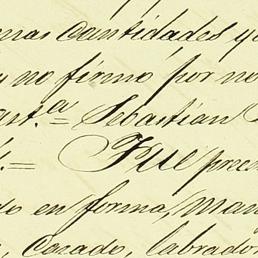 mas cantidades y
y no firmo por no
art.a = Sebastian
= Fue pres
do en forma, man
, Casado, labrador